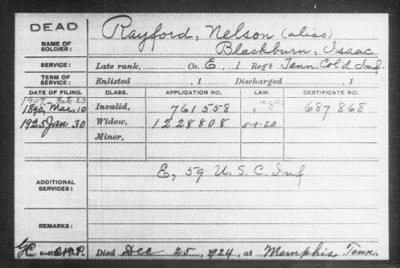 DEAD
NAME OF SOLDIER:
Rayford, Nelson (alias)
Blackburn, Isaac
SERVICE:
Late rank, Co. E, 1 Reg't Tenn. Col'd Inf.
TERM OF SERVICE:
Enlisted , 1 Discharged , 1
DATE OF FILING. CLASS. APPLICATION NO. LAW. CERTIFICATE NO.
1907, Feb. 23
1890, Mar. 10 Invalid, 761558 687868
1925 Jan 30 Widow, 1228808 5-1-20
Minor,
ADDITIONAL SERVICES:
E, 59 U. S. C. Inf
REMARKS:
Died Dec 25, 1924, at Memphis Tenn.